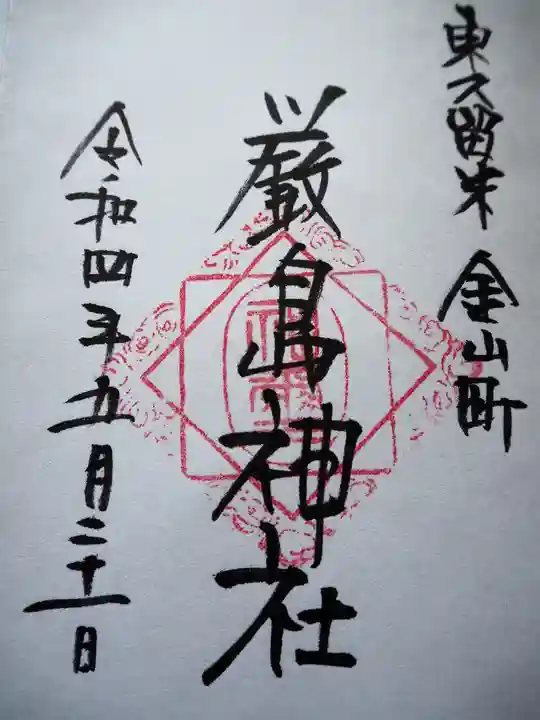 東久留米 金山町
厳島神社
令和四年九月二十一日